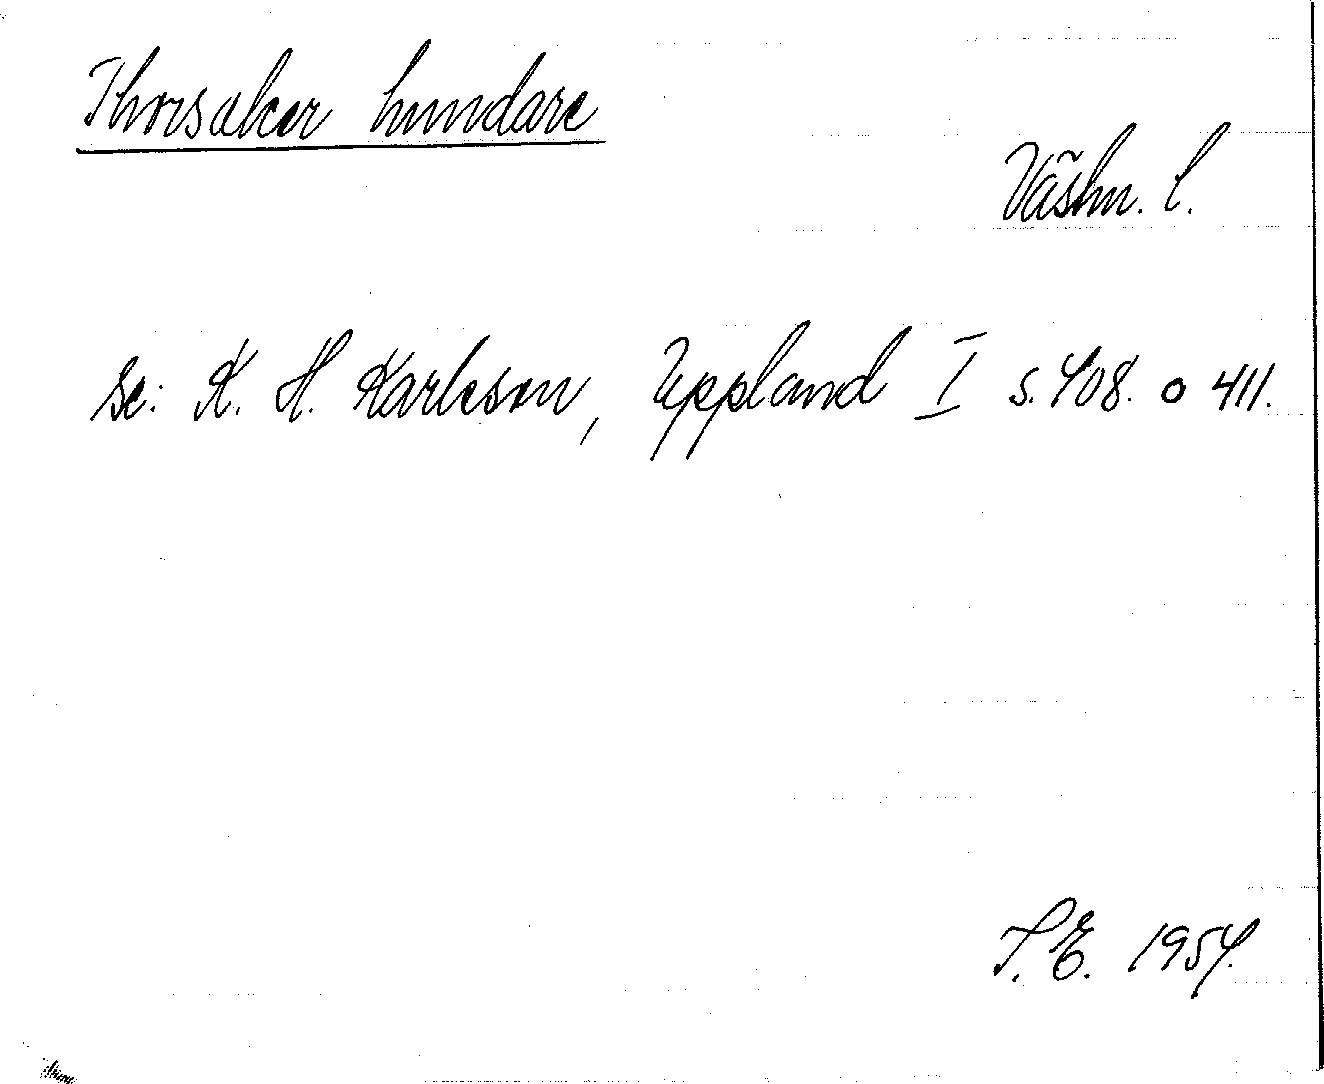 Thorsaker hundare
Västm. l.
se: K. H. Karlsson, Uppland I s. 408. o 411.
T. E. 1954.